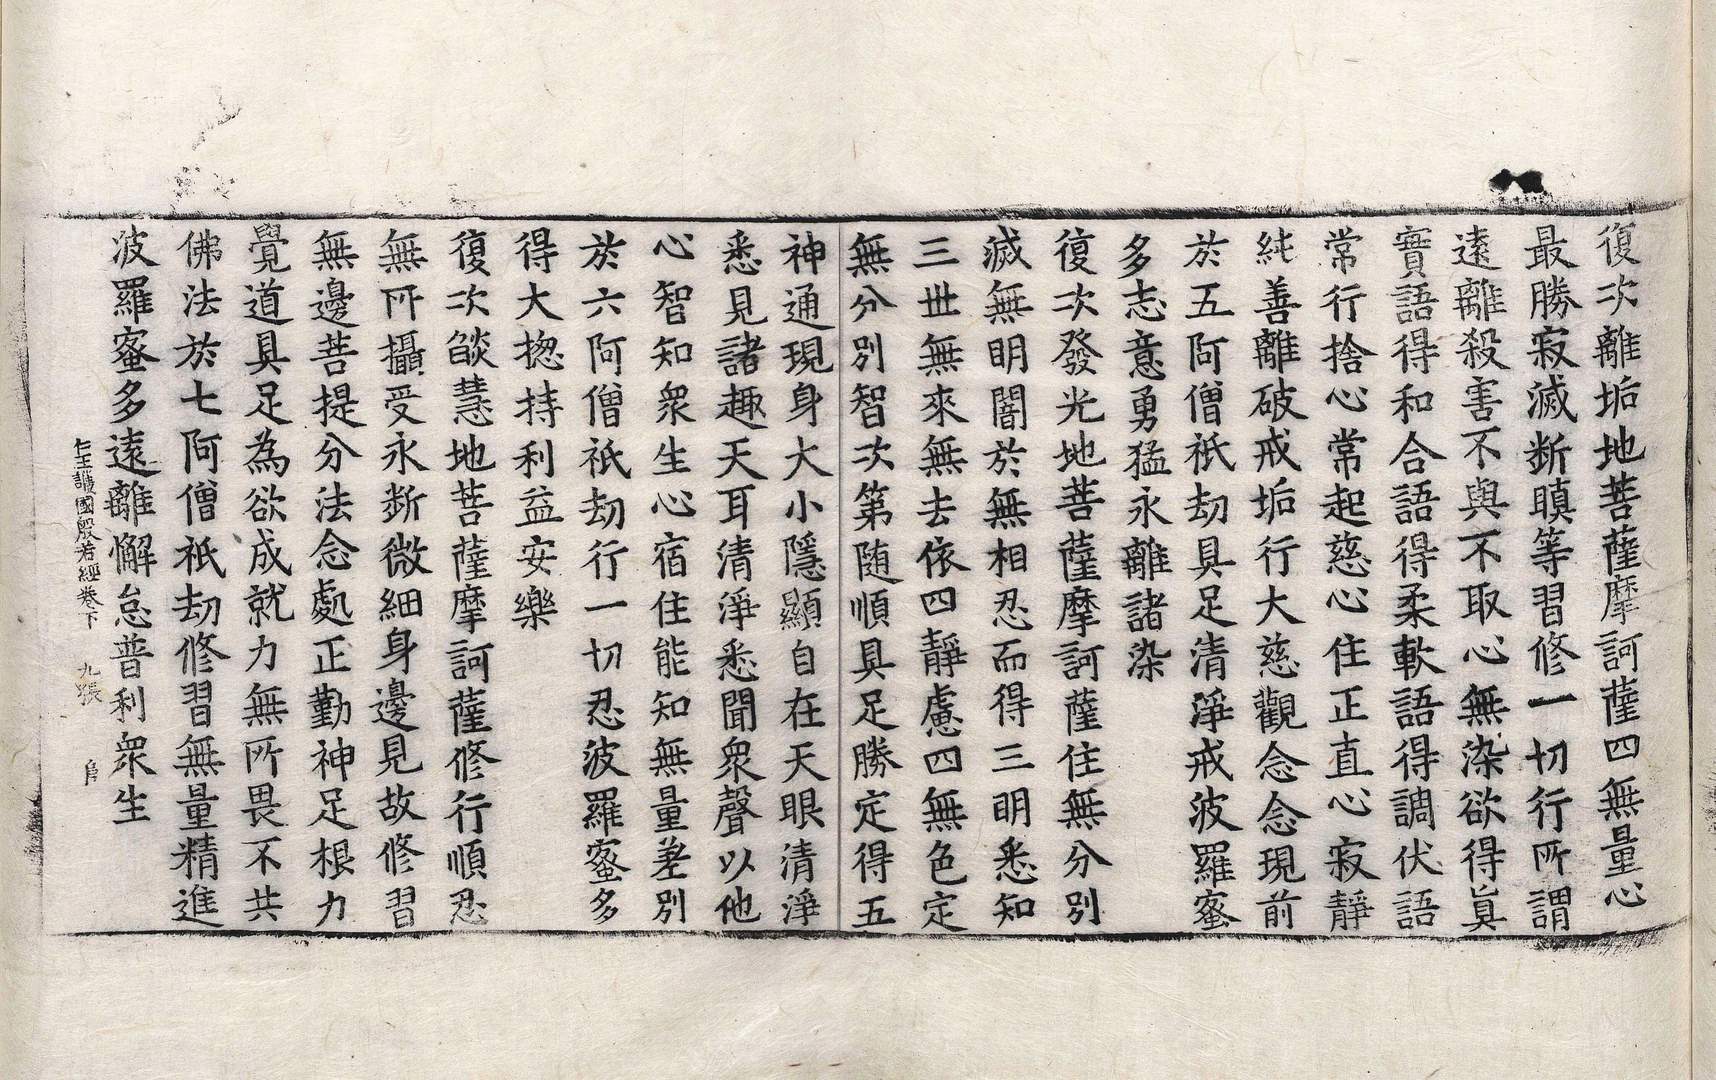 復次離垢地菩薩摩訶薩四無量心
最勝寂滅断瞋等習修一切行所謂
遠離殺害不與不取心無染欲得眞
實語得和合語得柔軟語得調伏語
常行捨心常起慈心住正直心寂靜
純善離破戒垢行大慈觀念念現前
於五阿僧祇劫具足清淨戒波羅蜜
多志意勇猛永離諸染
復次發光地菩薩摩訶薩住無分別
滅無明闇於無相忍而得三明悉知
三世無來無去依四靜慮四無色定
無分別智次第随順具足勝定得五
神通現身大小隱顯自在天眼清淨
悉見諸趣天耳清淨悉聞衆聲以他
心智知衆生心宿住能知無量差別
於六阿僧祇劫行一切忍波羅蜜多
得大捴持利益安樂
復次燄慧地菩薩摩訶薩修行順忍
無所攝受永断微細身邊見故修習
無邊菩提分法念處正勤神足根力
覺道具足為欲成就力無所畏不共
佛法於七阿僧祇劫修習無量精進
波羅蜜多遠離懈怠普利衆生
仁王護國般若經卷下 九張